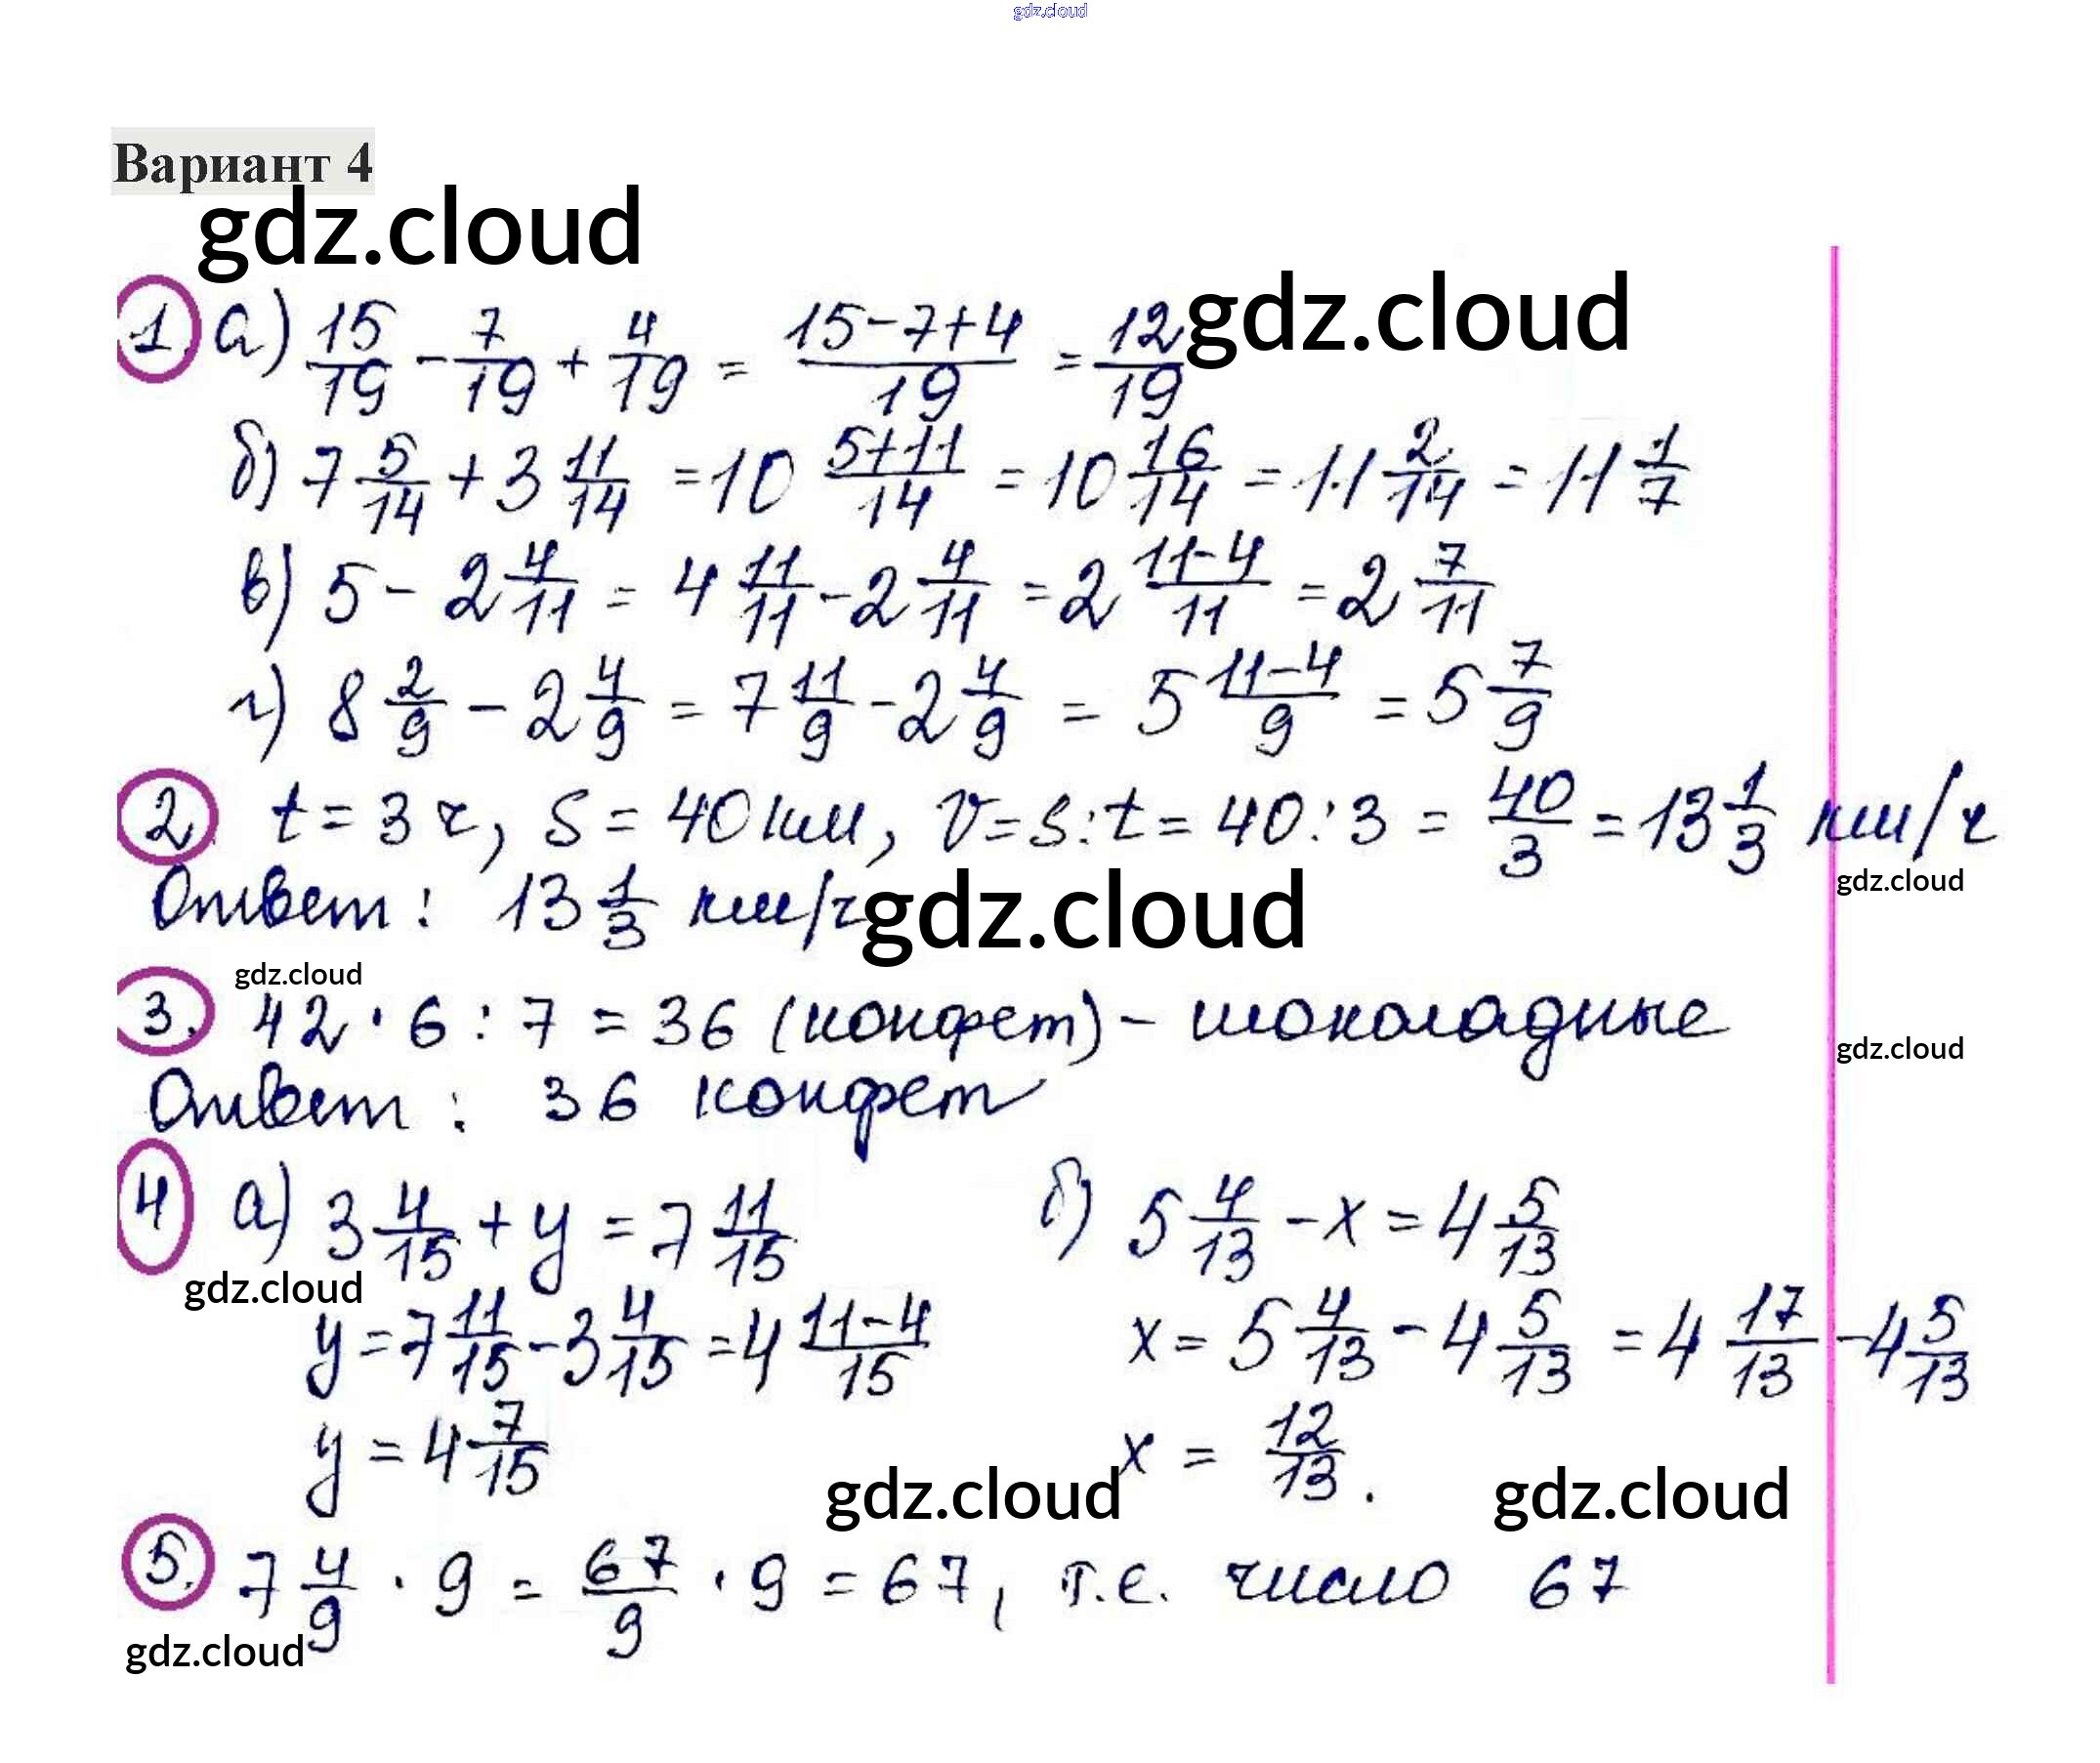 gdz.cloud
Вариант 4
gdz.cloud
1. а) 15/19 - 7/19 + 4/19 = (15-7+4)/19 = 12/19 gdz.cloud
б) 7 5/14 + 3 11/14 = 10 (5+11)/14 = 10 16/14 = 11 2/14 = 11 1/7
в) 5 - 2 4/11 = 4 11/11 - 2 4/11 = 2 (11-4)/11 = 2 7/11
г) 8 2/9 - 2 4/9 = 7 11/9 - 2 4/9 = 5 (11-4)/9 = 5 7/9
2. t = 3 ч, S = 40 км, V = s : t = 40 : 3 = 40/3 = 13 1/3 км/ч
gdz.cloud
Ответ : 13 1/3 км/ч gdz.cloud
gdz.cloud
3. 42 · 6 : 7 = 36 (конфет) - шоколадные
gdz.cloud
Ответ : 36 конфет
4 а) 3 4/15 + y = 7 11/15 б) 5 4/13 - x = 4 5/13
gdz.cloud
y = 7 11/15 - 3 4/15 = 4 (11-4)/15 x = 5 4/13 - 4 5/13 = 4 17/13 - 4 5/13
y = 4 7/15 x = 12/13.
gdz.cloud gdz.cloud
5. 7 4/9 · 9 = 67/9 · 9 = 67, т.е. число 67
gdz.cloud